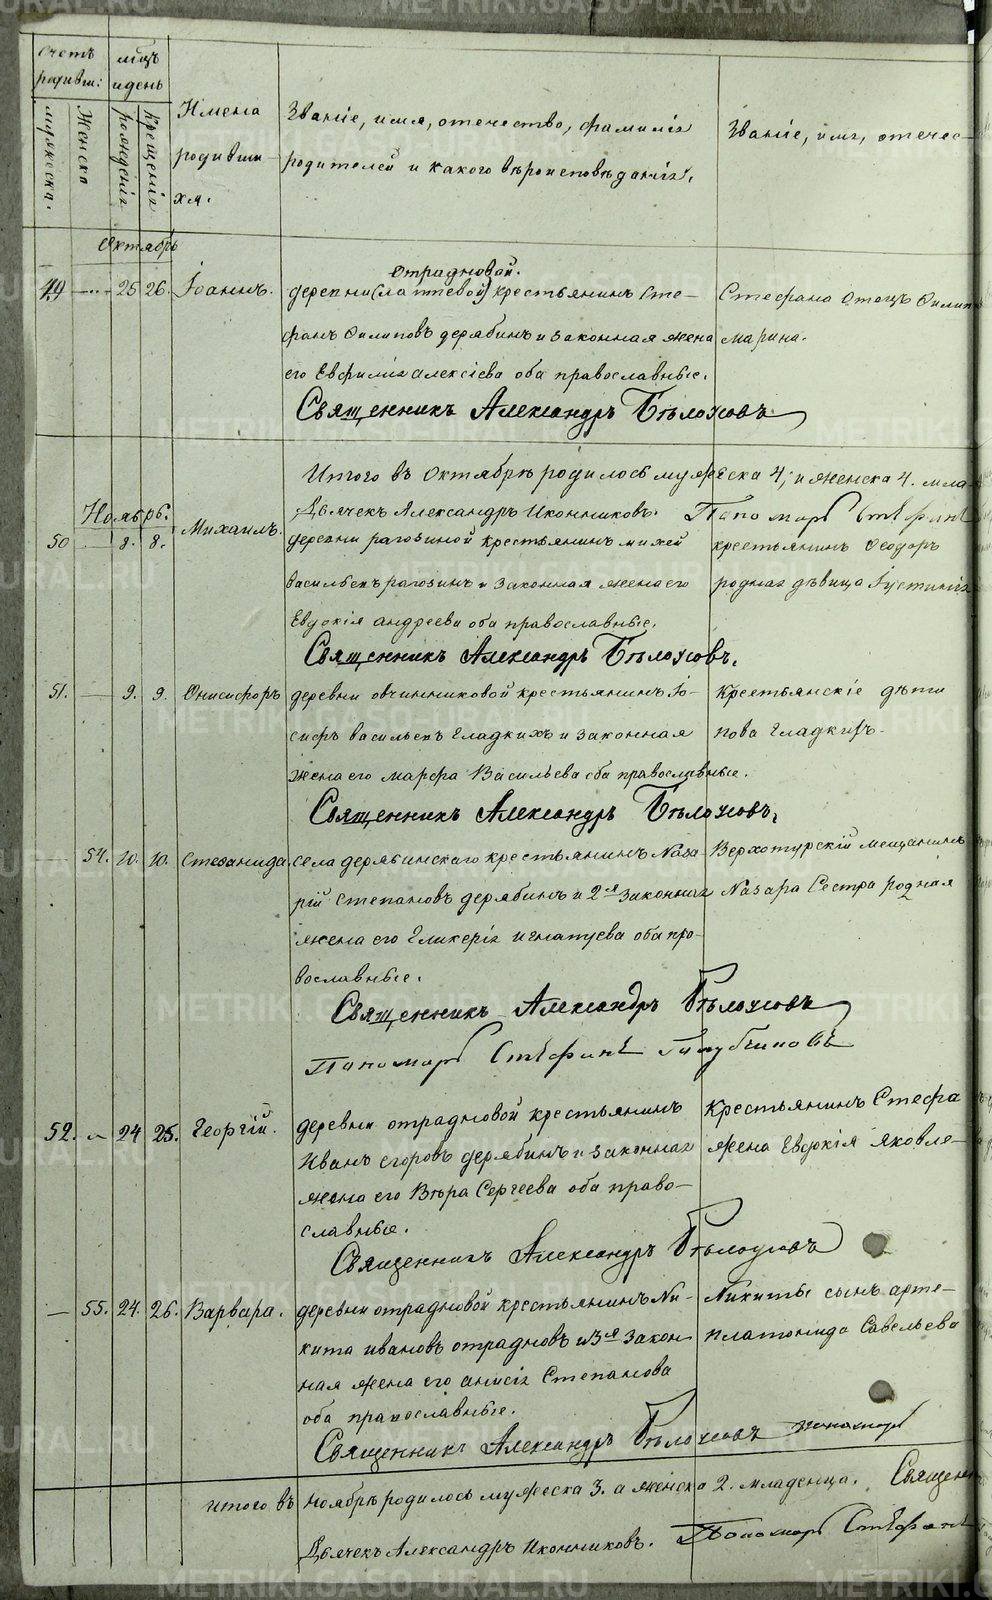 Счетъ родивш:
мужеска.
женска
мѣцъ и день
рожденія
крещенія
Имена родивши хъ.
Званіе, имя, отечество, фамилія
родителей и какого вѣроисповѣданія.
Званіе, имя, отечес-
Октябрь
отрадновой.
49 — 25 26. Іоаннъ. деревни (лаптевой) крестьянинъ Сте- Стефана отецъ Филип
фанъ Филиповъ дерябинъ и законная жена Марина.
его Евфимія алексіева оба православные.
Священникъ Александръ Бѣлоусовъ
Итого въ Октябрѣ родилось мужеска 4, и женска 4. мла-
Дьячекъ Александръ Иконниковъ. Пономарь Стефанъ
Ноябрь.
50 — 8. 8. Михаилъ. деревни рагозиной крестьянинъ михей крестьянинъ Феодоръ
васильевъ рагозинъ и законная жена его родная дѣвица Іустинія
Евдокія андреева оба православные.
Священникъ Александръ Бѣлоусовъ.
51. — 9. 9. Онисифоръ деревни овчинниковой крестьянинъ Іо- Крестьянскіе дѣти
сифъ васильевъ гладкихъ и законная пова гладкихъ.
жена его марфа Васильева оба православные.
Священникъ Александръ Бѣлоусовъ,
— 54. 10. 10. Стефанида. села дерябинскаго крестьянинъ Наза- Верхотурскій мещанинъ
рій степановъ дерябинъ и 2я законная Назара Сестра родная
жена его Гликерія игнатуева оба пра-
вославные.
Священникъ Александръ Бѣлоусовъ
Пономарь Стефанъ
52. — 24 25. Георгій. деревни отрадновой крестьянинъ Крестьянинъ Стефа
Иванъ егоровъ дерябинъ и законная жена Евдокія яковле-
жена его Вѣра Сергеева оба право-
славные.
Священникъ Александръ Бѣлоусовъ
— 55. 24. 26. Варвара. деревни отрадновой крестьянинъ Ни- Никиты сынъ арте-
кита ивановъ отрадновъ и 3я закон- платонида Савельева
ная жена его анисія Степанова
оба православные.
Священникъ Александръ Бѣлоусовъ пономарь
итого въ ноябрѣ родилось мужеска 3. а женска 2. младенца. Священ
Дьячекъ Александръ Иконниковъ. Пономарь Стефанъ
METRIKI.GASO-URAL.RU